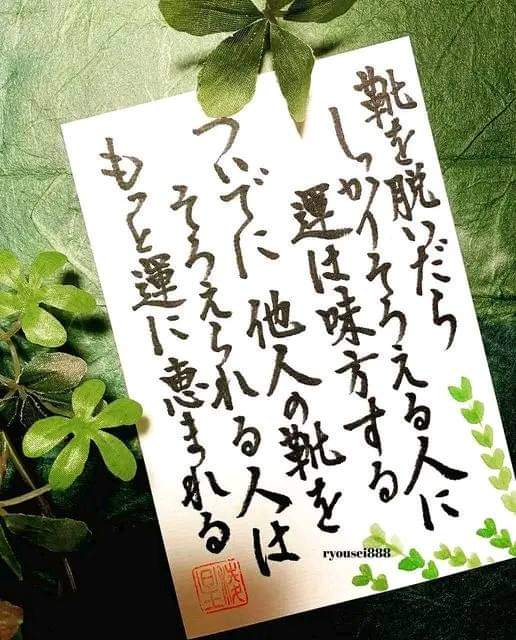 靴を脱いだら
しっかりそろえる人に
運は味方する
ついでに 他人の靴を
そろえられる人は
もっと運に恵まれる
ryousei888